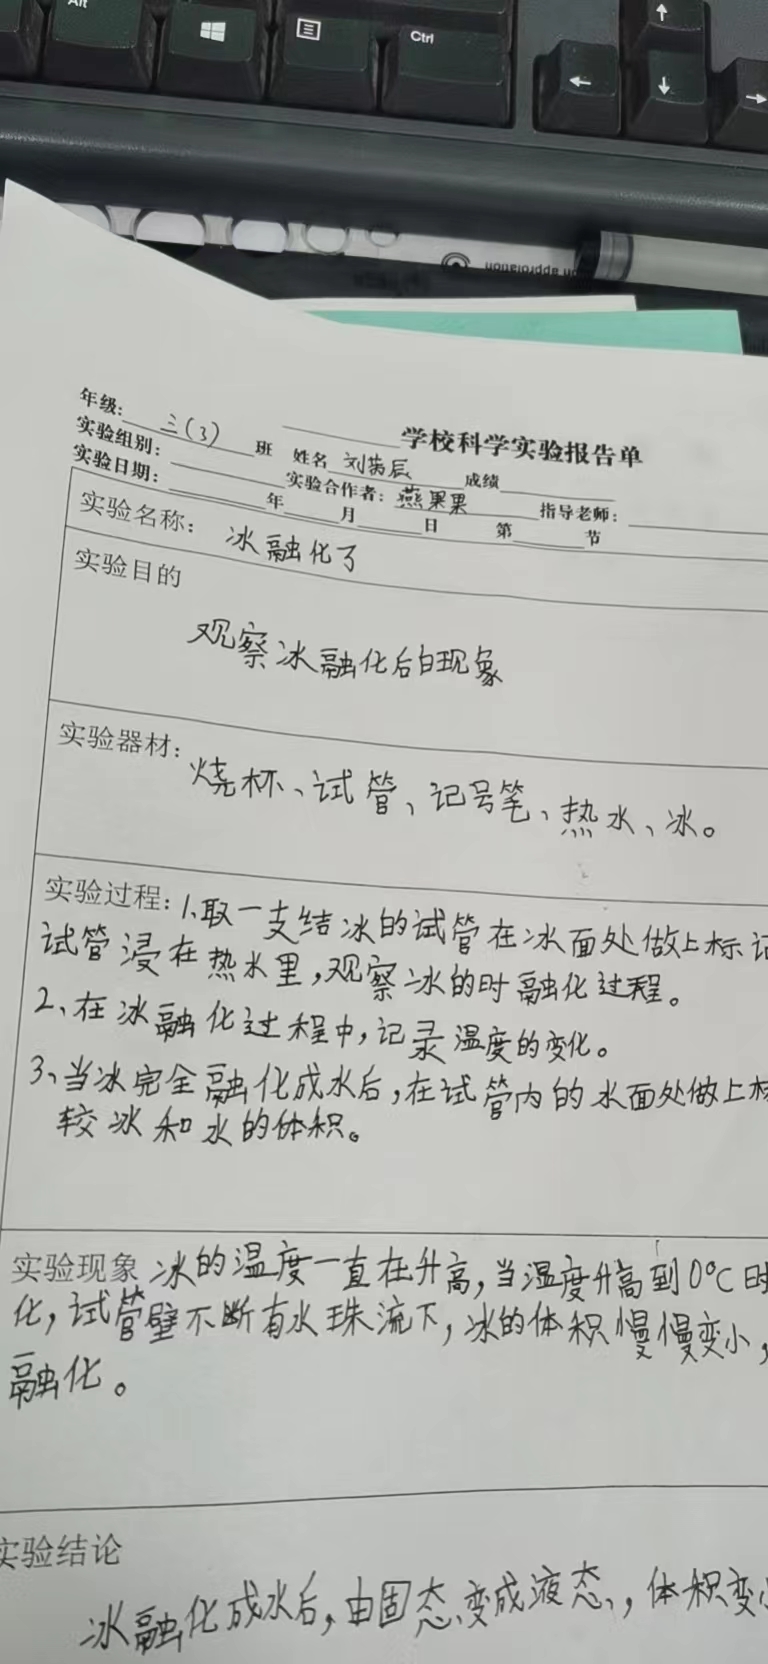 Alt
Ctrl
学校科学实验报告单
年级: 三(3) 班 姓名 刘芮辰 成绩
实验组别: 实验合作者: 燕果果 指导老师:
实验日期: 年 月 日 第 节
实验名称: 冰融化了
实验目的
观察冰融化后的现象
实验器材:
烧杯、试管、记号笔、热水、冰。
实验过程: 1、取一支结冰的试管在冰面处做上标记
试管浸在热水里,观察冰的时融化过程。
2、在冰融化过程中,记录温度的变化。
3、当冰完全融化成水后,在试管内的水面处做上标
较冰和水的体积。
实验现象 冰的温度一直在升高,当温度升高到0℃时
化,试管壁不断有水珠流下,冰的体积慢慢变小,
融化。
实验结论
冰融化成水后,由固态变成液态,体积变小